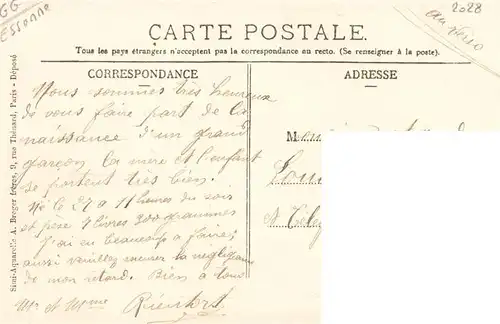 GG
Essonne
2028
au verso
CARTE POSTALE.
Tous les pays étrangers n'acceptent pas la correspondance au recto. (Se renseigner à la poste).
CORRESPONDANCE
Nous sommes très heureux
de vous faire part de la
naissance d'un grand
garçon la mère et l'enfant
se portent très bien.
Né le 27 a 11 heures du soir
et pèse 7 livres 300 grammes
J'ai eu beaucoup a faire;
aussi veuillez m'excuser la négligeance
de mon retard. Bien a tous
Mr et Mme
ADRESSE
Simi-Aquarelle A. Breger frères, 9, rue Thénard, Paris - Déposé